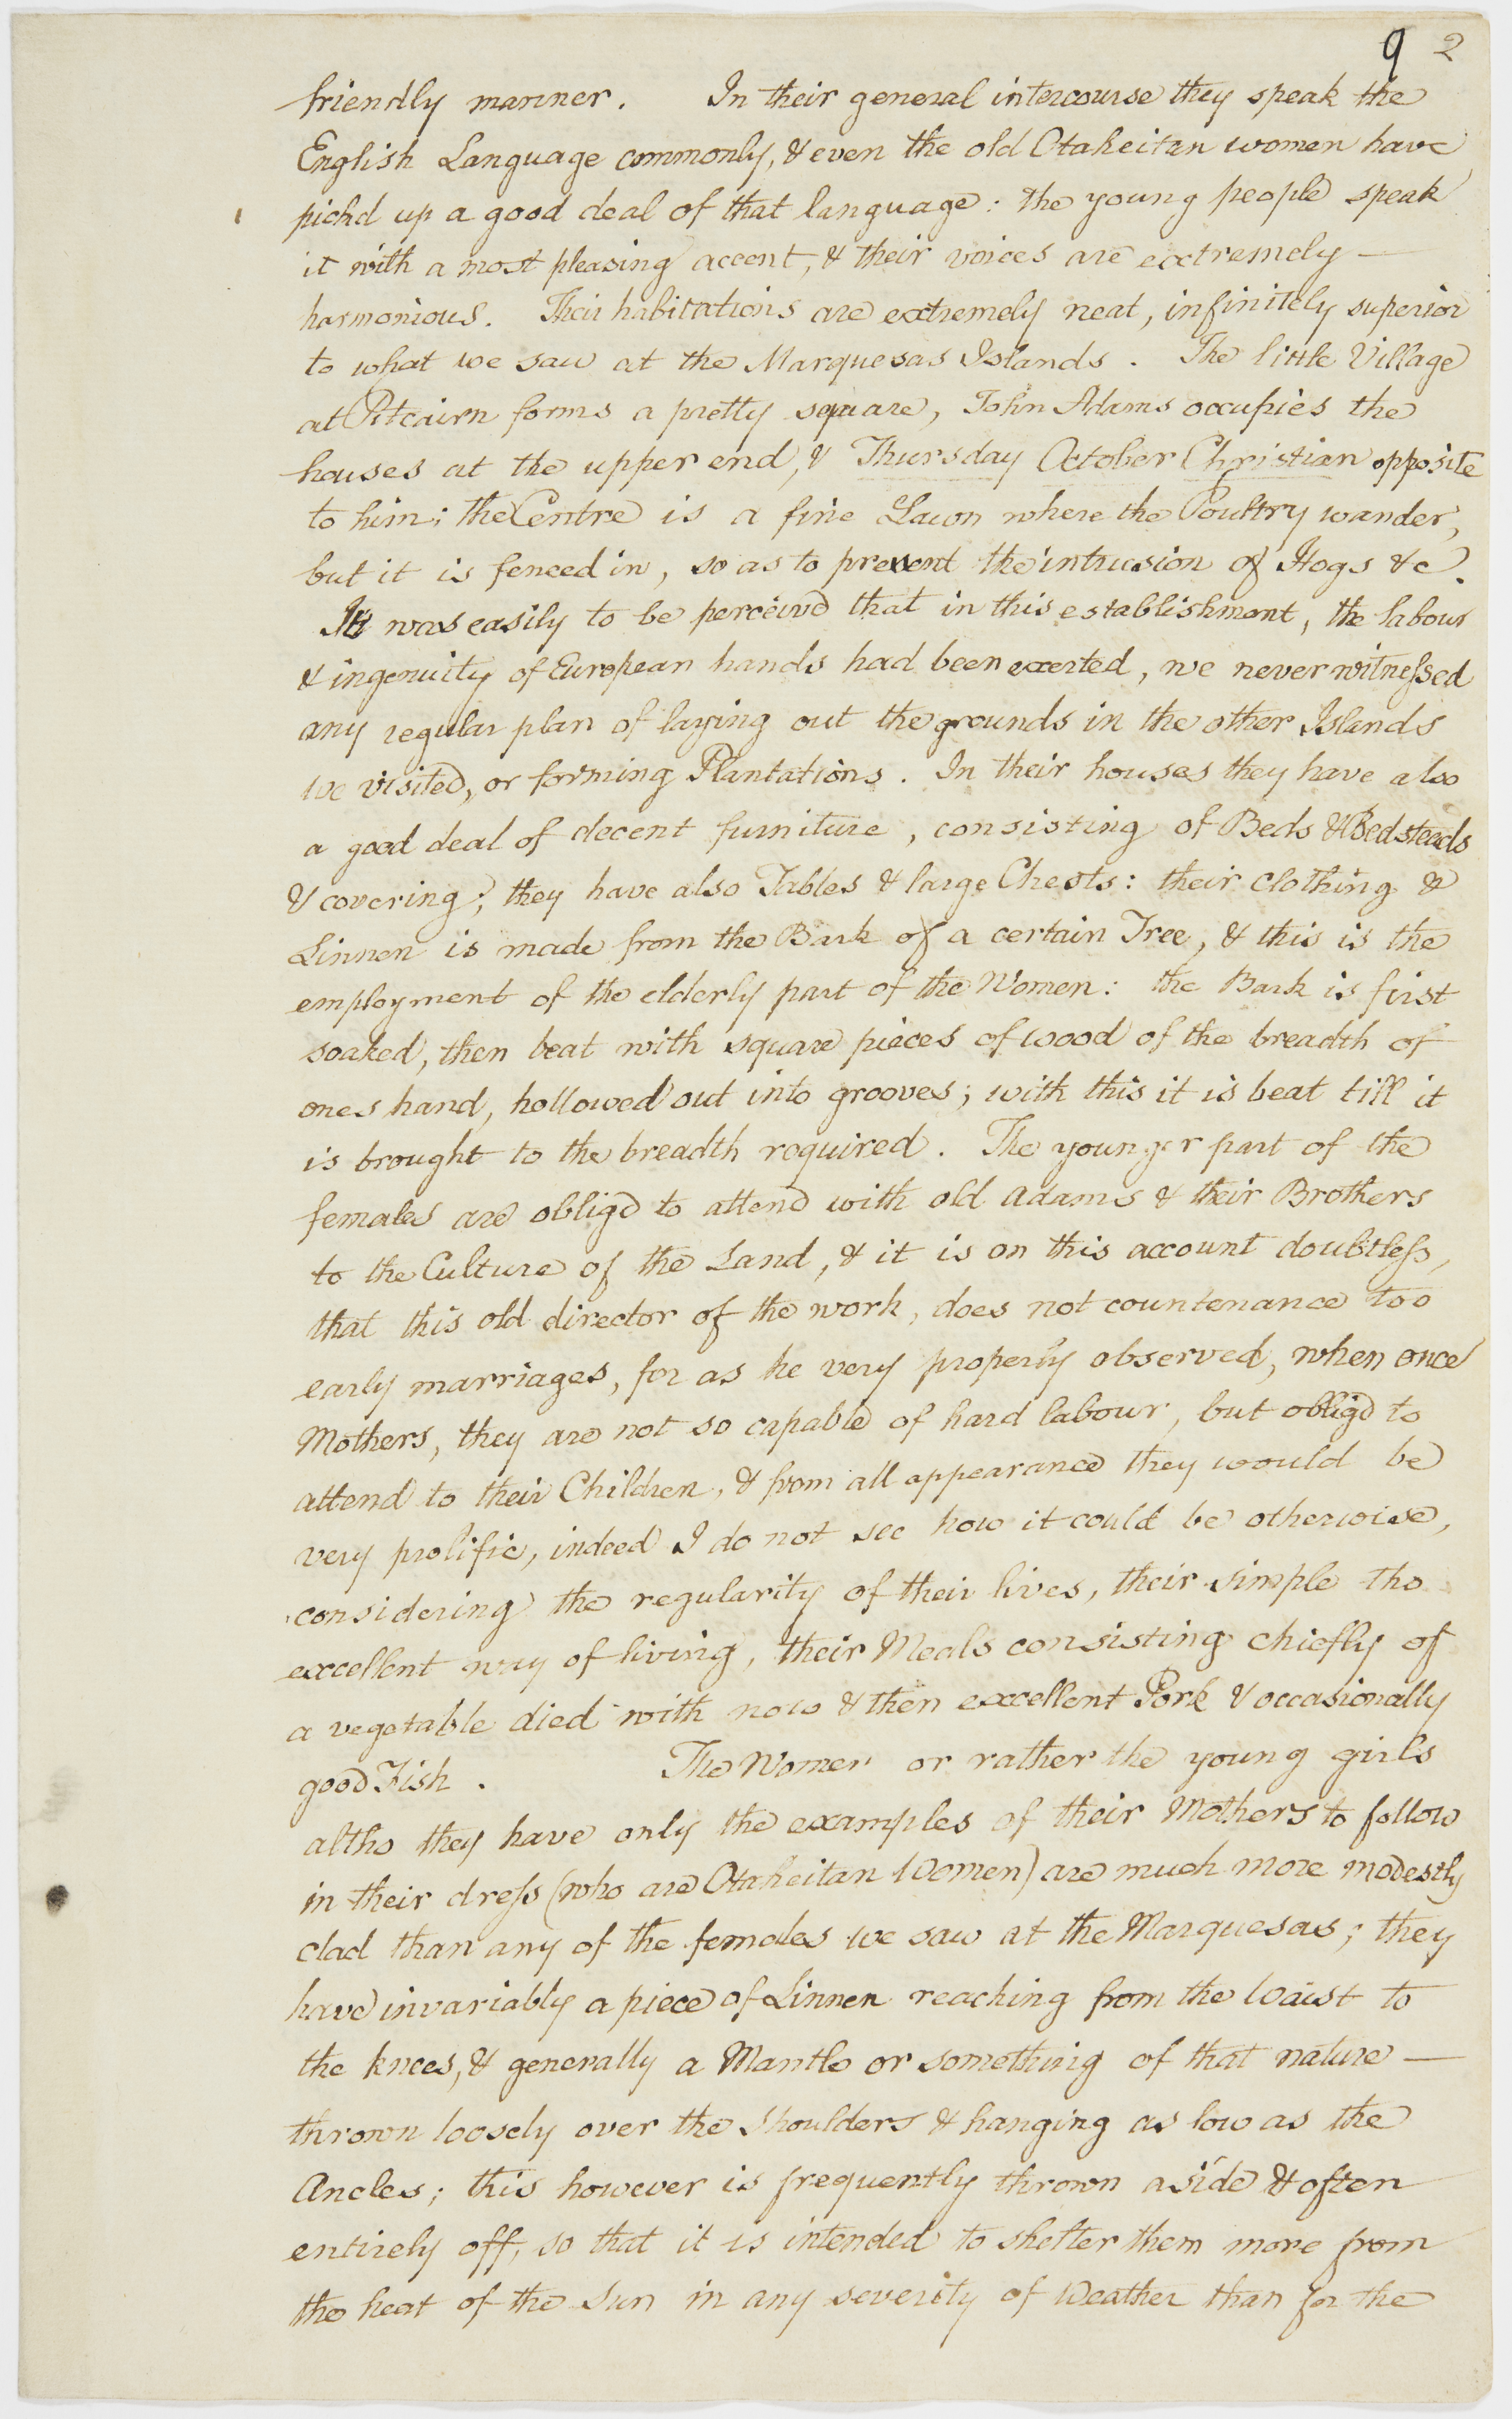 9 2
friendly manner. In their general intercourse they speak the
English Language commonly, & even the old Otaheitan women have
pickd up a good deal of that language: the young people speak
it with a most pleasing accent, & their voices are extremely —
harmonious. Their habitations are extremely neat, infinitely superior
to what we saw at the Marquesas Islands. The little Village
at Pitcairn forms a pretty square, John Adams occupies the
houses at the upper end, & Thursday October Christian opposite
to him; the Centre is a fine Lawn where the Poultry wander,
but it is fenced in, so as to prevent the intrusion of Hogs &c.
It was easily to be perceivd that in this establishment, the labour
& ingenuity of European hands had been exerted, we never witnessed
any regular plan of laying out the grounds in the other Islands
we visited, or forming Plantations. In their houses they have also
a good deal of decent furniture, consisting of Beds & Bedsteads
& covering; they have also Tables & large Chests: their clothing &
Linnen is made from the Bark of a certain Tree, & this is the
employment of the elderly part of the Women: the Bark is first
soaked, then beat with square pieces of wood of the breadth of
ones hand, hollowed out into grooves; with this it is beat till it
is brought to the breadth required. The younger part of the
females are obligd to attend with old Adams & their Brothers
to the Culture of the Land, & it is on this account doubtless,
that this old director of the work, does not countenance too
early marriages, for as he very properly observed, when once
Mothers, they are not so capable of hard labour, but obligd to
attend to their Children, & from all appearance they would be
very prolific, indeed I do not see how it could be otherwise,
considering the regularity of their lives, their simple tho
excellent way of living, their Meals consisting chiefly of
a vegetable died with now & then excellent Pork & occasionally
good Fish. The Women or rather the young girls
altho they have only the examples of their Mothers to follow
in their dress (who are Otaheitan Women) are much more modestly
clad than any of the females we saw at the Marquesas; they
have invariably a piece of Linnen reaching from the Waist to
the knees, & generally a Mantle or something of that nature —
thrown loosely over the Shoulders & hanging as low as the
Ancles; this however is frequently thrown aside & often
entirely off, so that it is intended to shelter them more from
the heat of the Sun in any severity of Weather than for the